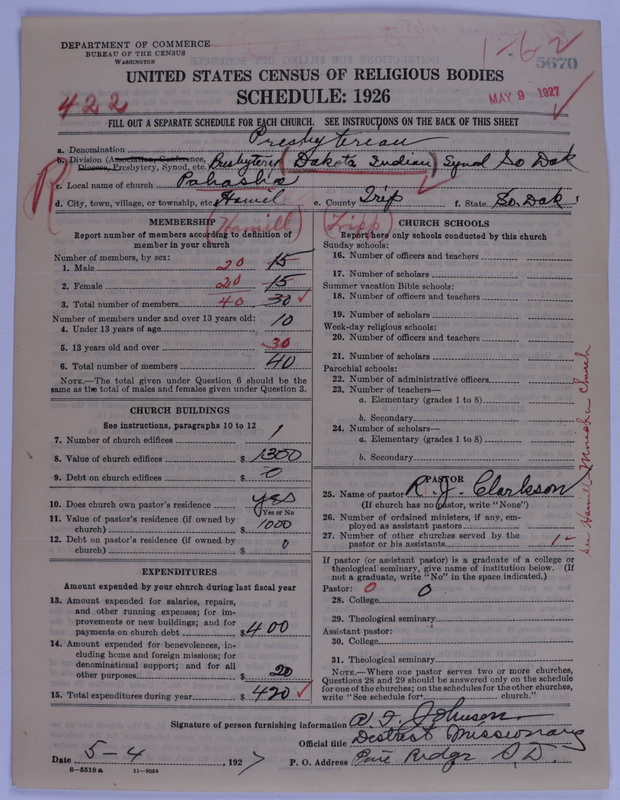 DEPARTMENT OF COMMERCE
BUREAU OF THE CENSUS
WASHINGTON
1-62
5670
UNITED STATES CENSUS OF RELIGIOUS BODIES
SCHEDULE: 1926
422
MAY 9 1927
FILL OUT A SEPARATE SCHEDULE FOR EACH CHURCH. SEE INSTRUCTIONS ON THE BACK OF THIS SHEET
a. Denomination Presbyterian
b. Division (Association, Conference, Diocese, Presbytery, Synod, etc. Presbytery (Dakota Indian) Synod So Dak
R
c. Local name of church
d. City, town, village, or township, etc Hamil e. County Trip f. State So. Dak.
(Hamill) (Tripp)
MEMBERSHIP
Report number of members according to definition of
member in your church
Number of members, by sex:
1. Male 20 15
2. Female 20 15
3. Total number of members 40 30
Number of members under and over 13 years old:
4. Under 13 years of age 10
5. 13 years old and over 30
6. Total number of members 40
NOTE.—The total given under Question 6 should be the
same as the total of males and females given under Question 3.
CHURCH BUILDINGS
See instructions, paragraphs 10 to 12
7. Number of church edifices 1
8. Value of church edifices $ 1300
9. Debt on church edifices $ 0
10. Does church own pastor's residence yes
Yes or No
11. Value of pastor's residence (if owned by
church) $ 1000
12. Debt on pastor's residence (if owned by
church) $ 0
EXPENDITURES
Amount expended by your church during last fiscal year
13. Amount expended for salaries, repairs,
and other running expenses; for im-
provements or new buildings; and for
payments on church debt $ 400
14. Amount expended for benevolences, in-
cluding home and foreign missions; for
denominational support; and for all
other purposes $ 20
15. Total expenditures during year $ 420
CHURCH SCHOOLS
Report here only schools conducted by this church
Sunday schools:
16. Number of officers and teachers
17. Number of scholars
Summer vacation Bible schools:
18. Number of officers and teachers
19. Number of scholars
Week-day religious schools:
20. Number of officers and teachers
21. Number of scholars
Parochial schools:
22. Number of administrative officers
23. Number of teachers—
a. Elementary (grades 1 to 8)
b. Secondary
24. Number of scholars—
a. Elementary (grades 1 to 8)
b. Secondary
PASTOR
25. Name of pastor R. J. Clarkson
(If church has no pastor, write "None")
26. Number of ordained ministers, if any, em-
ployed as assistant pastors
27. Number of other churches served by the
pastor or his assistants 1-
See Hamill Church
If pastor (or assistant pastor) is a graduate of a college or
theological seminary, give name of institution below. (If
not a graduate, write "No" in the space indicated.)
Pastor: 0 0
28. College
29. Theological seminary
Assistant pastor:
30. College
31. Theological seminary
NOTE.—Where one pastor serves two or more churches,
Questions 28 and 29 should be answered only on the schedule
for one of the churches; on the schedules for the other churches,
write "See schedule for church."
Signature of person furnishing information A. F. Johnson
Official title District Missionary
Date 5-4, 1927 P. O. Address Pine Ridge S.D.
8-5518 a 11-9054